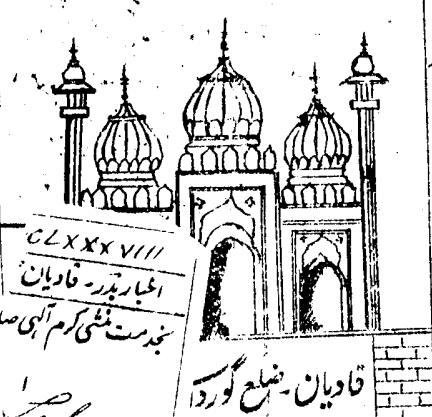 CLXXXVIII
اخبار بدر - قادیان
بخدمت منشی کرم آلهی صا
قادیان - ضلع گوردا